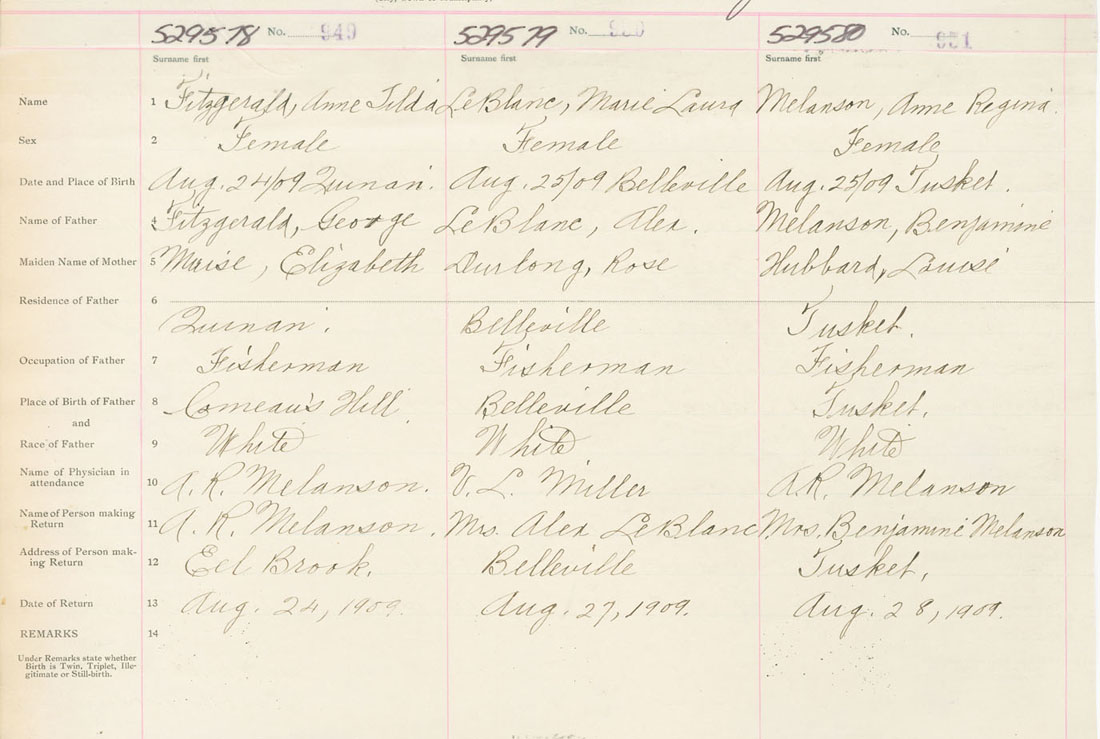 529578 No. 949 529579 No. 950 529580 No. 951
Surname first Surname first Surname first
Name 1 Fitzgerald, Anne Tilda LeBlanc, Marie Laura Melanson, Anne Regina.
Sex 2 Female Female Female
Date and Place of Birth Aug. 24/09 Quinan. Aug. 25/09 Belleville Aug. 25/09 Tusket.
Name of Father 4 Fitzgerald, George LeBlanc, Alex. Melanson, Benjamine
Maiden Name of Mother 5 Muise, Elizabeth Durlong, Rose Hubbard, Louise
Residence of Father 6
Quinan. Belleville Tusket.
Occupation of Father 7 Fisherman Fisherman Fisherman
Place of Birth of Father 8 Comeau's Hill Belleville Tusket.
and
Race of Father 9 White White White
Name of Physician in
attendance 10 A. R. Melanson. V. L. Miller A.R. Melanson
Name of Person making
Return 11 A. R. Melanson. Mrs. Alex LeBlanc Mrs. Benjamine Melanson
Address of Person mak-
ing Return 12 Eel Brook. Belleville Tusket.
Date of Return 13 Aug. 24, 1909. Aug. 27, 1909. Aug. 28, 1909.
REMARKS 14
Under Remarks state whether
Birth is Twin, Triplet, Ille-
gitimate or Still-birth.